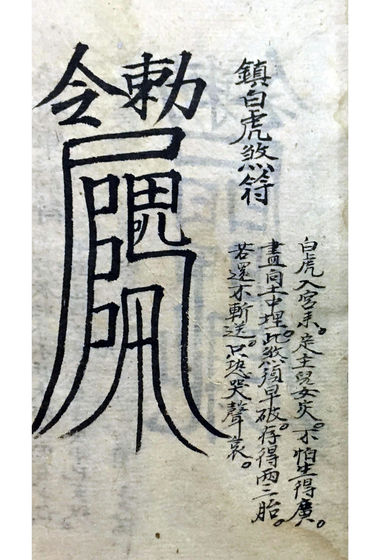 鎮白虎煞符
白虎入宮来。定主兒女灾。不怕生得廣。
盡向土中埋。此煞須早破。存得兩三胎。
若還不斬送。只恐哭聲哀。
勅令